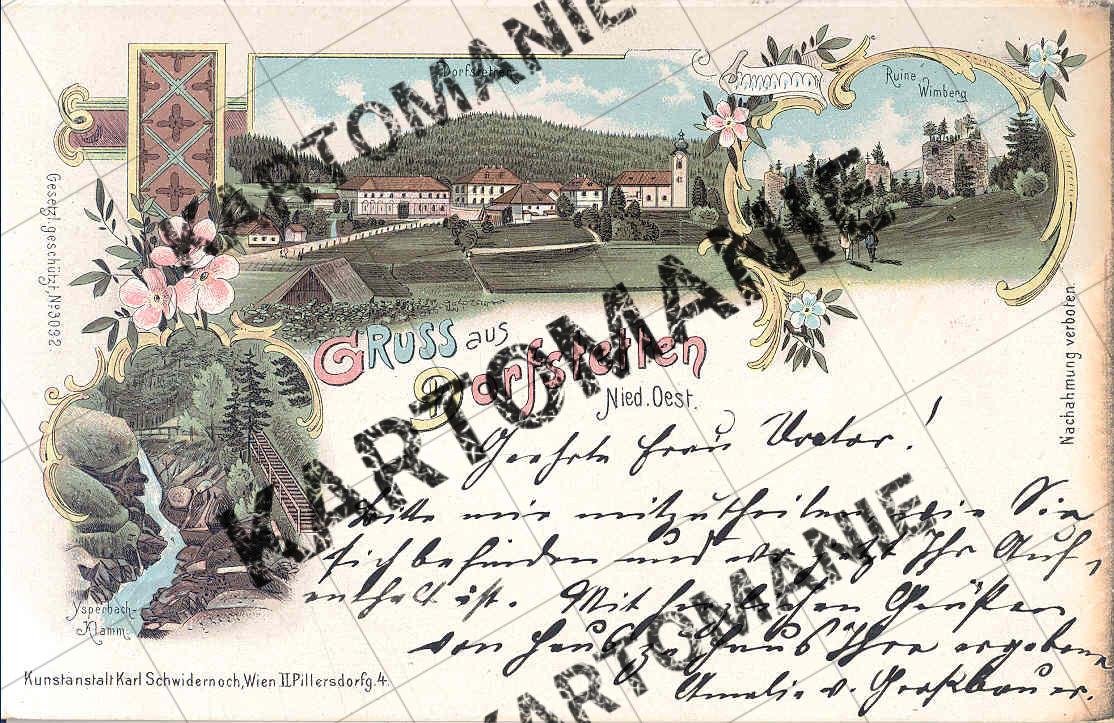 KARTOMANIE
Dorfstetten
Ruine
Wimberg
Gesetzl. geschützt, No 3092.
GRUSS aus
Dorfstetten
Nied. Oest.
Nachahmung verboten.
Geehrte Frau !
Bitte mir mitzutheilen wie Sie
sich befinden und wo jetzt Ihr Auf-
enthalt ist. Mit herzlichen Grüßen
von Haus zu Haus Ihre ergebene
Amalie v.
Ysperbach-
Klamm.
Kunstanstalt Karl Schwidernoch, Wien II. Pillersdorfg. 4.
KARTOMANIE
KARTOMANIE